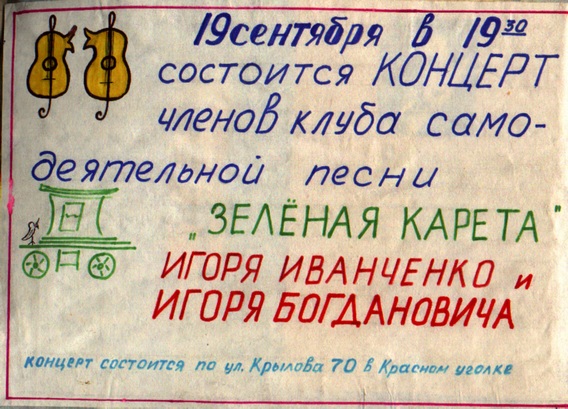 19 сентября в 19 30
состоится КОНЦЕРТ
членов клуба само-
деятельной песни
„ЗЕЛЁНАЯ КАРЕТА"
ИГОРЯ ИВАНЧЕНКО и
ИГОРЯ БОГДАНОВИЧА
концерт состоится по ул. Крылова 70 в Красном уголке